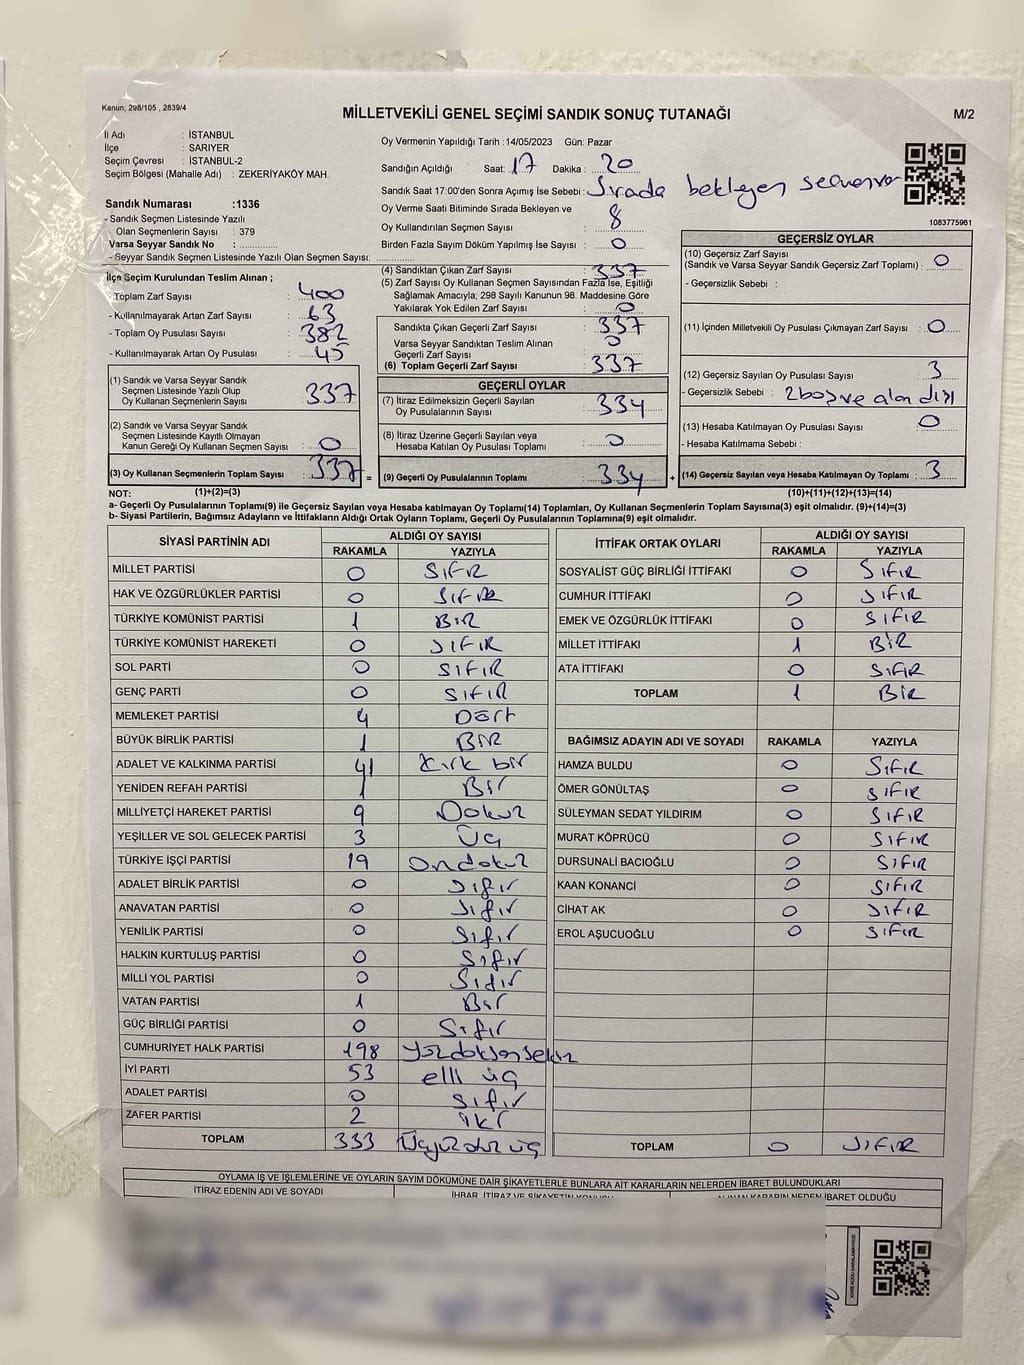 Kanun; 298/105 , 2839/4
MİLLETVEKİLİ GENEL SEÇİMİ SANDIK SONUÇ TUTANAĞI
M/2
İl Adı : İSTANBUL
İlçe : SARIYER
Seçim Çevresi : İSTANBUL-2
Seçim Bölgesi (Mahalle Adı) : ZEKERİYAKÖY MAH.
Oy Vermenin Yapıldığı Tarih : 14/05/2023 Gün: Pazar
Sandığın Açıldığı Saat: 17 Dakika: 20
Sandık Saat 17:00'den Sonra Açımış İse Sebebi : Sırada bekleyen
Oy Verme Saati Bitiminde Sırada Bekleyen ve
Oy Kullandırılan Seçmen Sayısı : 8
Birden Fazla Sayım Döküm Yapılmış İse Sayısı : 0
1083775961
Sandık Numarası :1336
- Sandık Seçmen Listesinde Yazılı
Olan Seçmenlerin Sayısı : 379
Varsa Seyyar Sandık No :
- Seyyar Sandık Seçmen Listesinde Yazılı Olan Seçmen Sayısı:
İlçe Seçim Kurulundan Teslim Alınan ;
- Toplam Zarf Sayısı : 400
- Kullanılmayarak Artan Zarf Sayısı : 63
- Toplam Oy Pusulası Sayısı : 382
- Kullanılmayarak Artan Oy Pusulası : 45
(1) Sandık ve Varsa Seyyar Sandık
Seçmen Listesinde Yazılı Olup
Oy Kullanan Seçmenlerin Sayısı : 337
(2) Sandık ve Varsa Seyyar Sandık
Seçmen Listesinde Kayıtlı Olmayan
Kanun Gereği Oy Kullanan Seçmen Sayısı : 0
(3) Oy Kullanan Seçmenlerin Toplam Sayısı : 337
(4) Sandıktan Çıkan Zarf Sayısı : 337
(5) Zarf Sayısı Oy Kullanan Seçmen Sayısından Fazla İse, Eşitliği
Sağlamak Amacıyla; 298 Sayılı Kanunun 98. Maddesine Göre
Yakılarak Yok Edilen Zarf Sayısı : 0
Sandıkta Çıkan Geçerli Zarf Sayısı : 337
Varsa Seyyar Sandıktan Teslim Alınan
Geçerli Zarf Sayısı : 0
(6) Toplam Geçerli Zarf Sayısı : 337
GEÇERLİ OYLAR
(7) İtiraz Edilmeksizin Geçerli Sayılan
Oy Pusulalarının Sayısı : 334
(8) İtiraz Üzerine Geçerli Sayılan veya
Hesaba Katılan Oy Pusulası Toplamı : 0
= (9) Geçerli Oy Pusulalarının Toplamı : 334
GEÇERSİZ OYLAR
(10) Geçersiz Zarf Sayısı
(Sandık ve Varsa Seyyar Sandık Geçersiz Zarf Toplamı) : 0
- Geçersizlik Sebebi :
(11) İçinden Milletvekili Oy Pusulası Çıkmayan Zarf Sayısı : 0
(12) Geçersiz Sayılan Oy Pusulası Sayısı : 3
- Geçersizlik Sebebi : 2 boş ve alan dışı
(13) Hesaba Katılmayan Oy Pusulası Sayısı : 0
- Hesaba Katılmama Sebebi :
+ (14) Geçersiz Sayılan veya Hesaba Katılmayan Oy Toplamı : 3
NOT: (1)+(2)=(3) (10)+(11)+(12)+(13)=(14)
a- Geçerli Oy Pusulalarının Toplamı(9) ile Geçersiz Sayılan veya Hesaba katılmayan Oy Toplamı(14) Toplamları, Oy Kullanan Seçmenlerin Toplam Sayısına(3) eşit olmalıdır. (9)+(14)=(3)
b- Siyasi Partilerin, Bağımsız Adayların ve İttifakların Aldığı Ortak Oyların Toplamı, Geçerli Oy Pusulalarının Toplamına(9) eşit olmalıdır.
SİYASİ PARTİNİN ADI ALDIĞI OY SAYISI
RAKAMLA YAZIYLA
MİLLET PARTİSİ 0 SIFIR
HAK VE ÖZGÜRLÜKLER PARTİSİ 0 SIFIR
TÜRKİYE KOMÜNİST PARTİSİ 1 BİR
TÜRKİYE KOMÜNİST HAREKETİ 0 SIFIR
SOL PARTİ 0 SIFIR
GENÇ PARTİ 0 SIFIR
MEMLEKET PARTİSİ 4 Dört
BÜYÜK BİRLİK PARTİSİ 1 BİR
ADALET VE KALKINMA PARTİSİ 41 Kırk bir
YENİDEN REFAH PARTİSİ 1 Bir
MİLLİYETÇİ HAREKET PARTİSİ 9 Dokuz
YEŞİLLER VE SOL GELECEK PARTİSİ 3 Üç
TÜRKİYE İŞÇİ PARTİSİ 19 Ondokuz
ADALET BİRLİK PARTİSİ 0 Sıfır
ANAVATAN PARTİSİ 0 Sıfır
YENİLİK PARTİSİ 0 Sıfır
HALKIN KURTULUŞ PARTİSİ 0 Sıfır
MİLLİ YOL PARTİSİ 0 Sıfır
VATAN PARTİSİ 1 Bir
GÜÇ BİRLİĞİ PARTİSİ 0 Sıfır
CUMHURİYET HALK PARTİSİ 198 Yüzdoksansekiz
İYİ PARTİ 53 elli üç
ADALET PARTİSİ 0 Sıfır
ZAFER PARTİSİ 2 iki
TOPLAM 333 Üçyüzotuz üç
İTTİFAK ORTAK OYLARI ALDIĞI OY SAYISI
RAKAMLA YAZIYLA
SOSYALİST GÜÇ BİRLİĞİ İTTİFAKI 0 SIFIR
CUMHUR İTTİFAKI 0 SIFIR
EMEK VE ÖZGÜRLÜK İTTİFAKI 0 SIFIR
MİLLET İTTİFAKI 1 BİR
ATA İTTİFAKI 0 SIFIR
TOPLAM 1 BİR
BAĞIMSIZ ADAYIN ADI VE SOYADI RAKAMLA YAZIYLA
HAMZA BULDU 0 SIFIR
ÖMER GÖNÜLTAŞ 0 SIFIR
SÜLEYMAN SEDAT YILDIRIM 0 SIFIR
MURAT KÖPRÜCÜ 0 SIFIR
DURSUNALİ BACIOĞLU 0 SIFIR
KAAN KONANCİ 0 SIFIR
CİHAT AK 0 SIFIR
EROL AŞUCUOĞLU 0 SIFIR
TOPLAM 0 SIFIR
OYLAMA İŞ VE İŞLEMLERİNE VE OYLARIN SAYIM DÖKÜMÜNE DAİR ŞİKAYETLERLE BUNLARA AİT KARARLARIN NELERDEN İBARET BULUNDUKLARI
İTİRAZ EDENİN ADI VE SOYADI İHBAR, İTİRAZ VE ŞİKAYETİN KONUSU ALINAN KARARIN NEDEN İBARET OLDUĞU